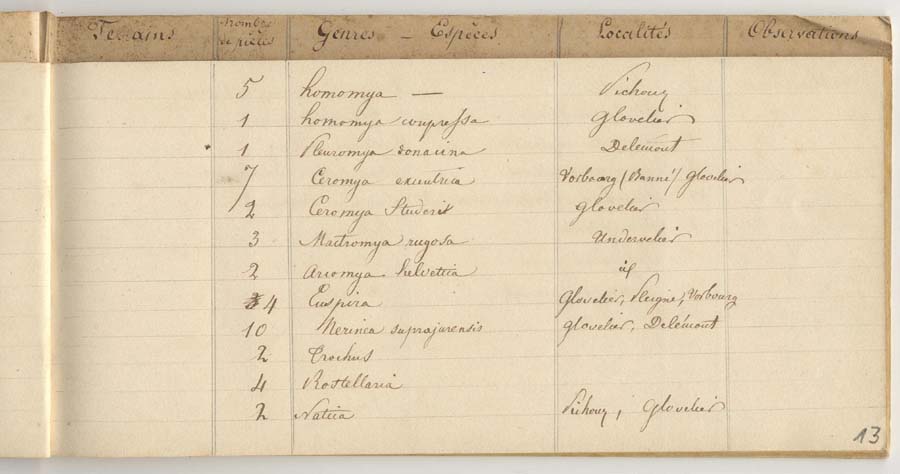 Terrains Nombre de pièces Genres – Espèces Localités Observations
5 homomya — Pichoux
1 homomya compressa Glovelier
1 Pleuromya donacina Delémont
7 Ceromya excentrica Vorbourg (Banné) Glovelier
2 Ceromya Studeri Glovelier
3 Mactromya rugosa Undervelier
2 Arcomya helvetica id
4 Euspira Glovelier, Pleigne, Vorbourg
10 Nerinea suprajurensis Glovelier, Delémont
2 Trochus
4 Rostellaria
2 Natica Pichoux, Glovelier
13